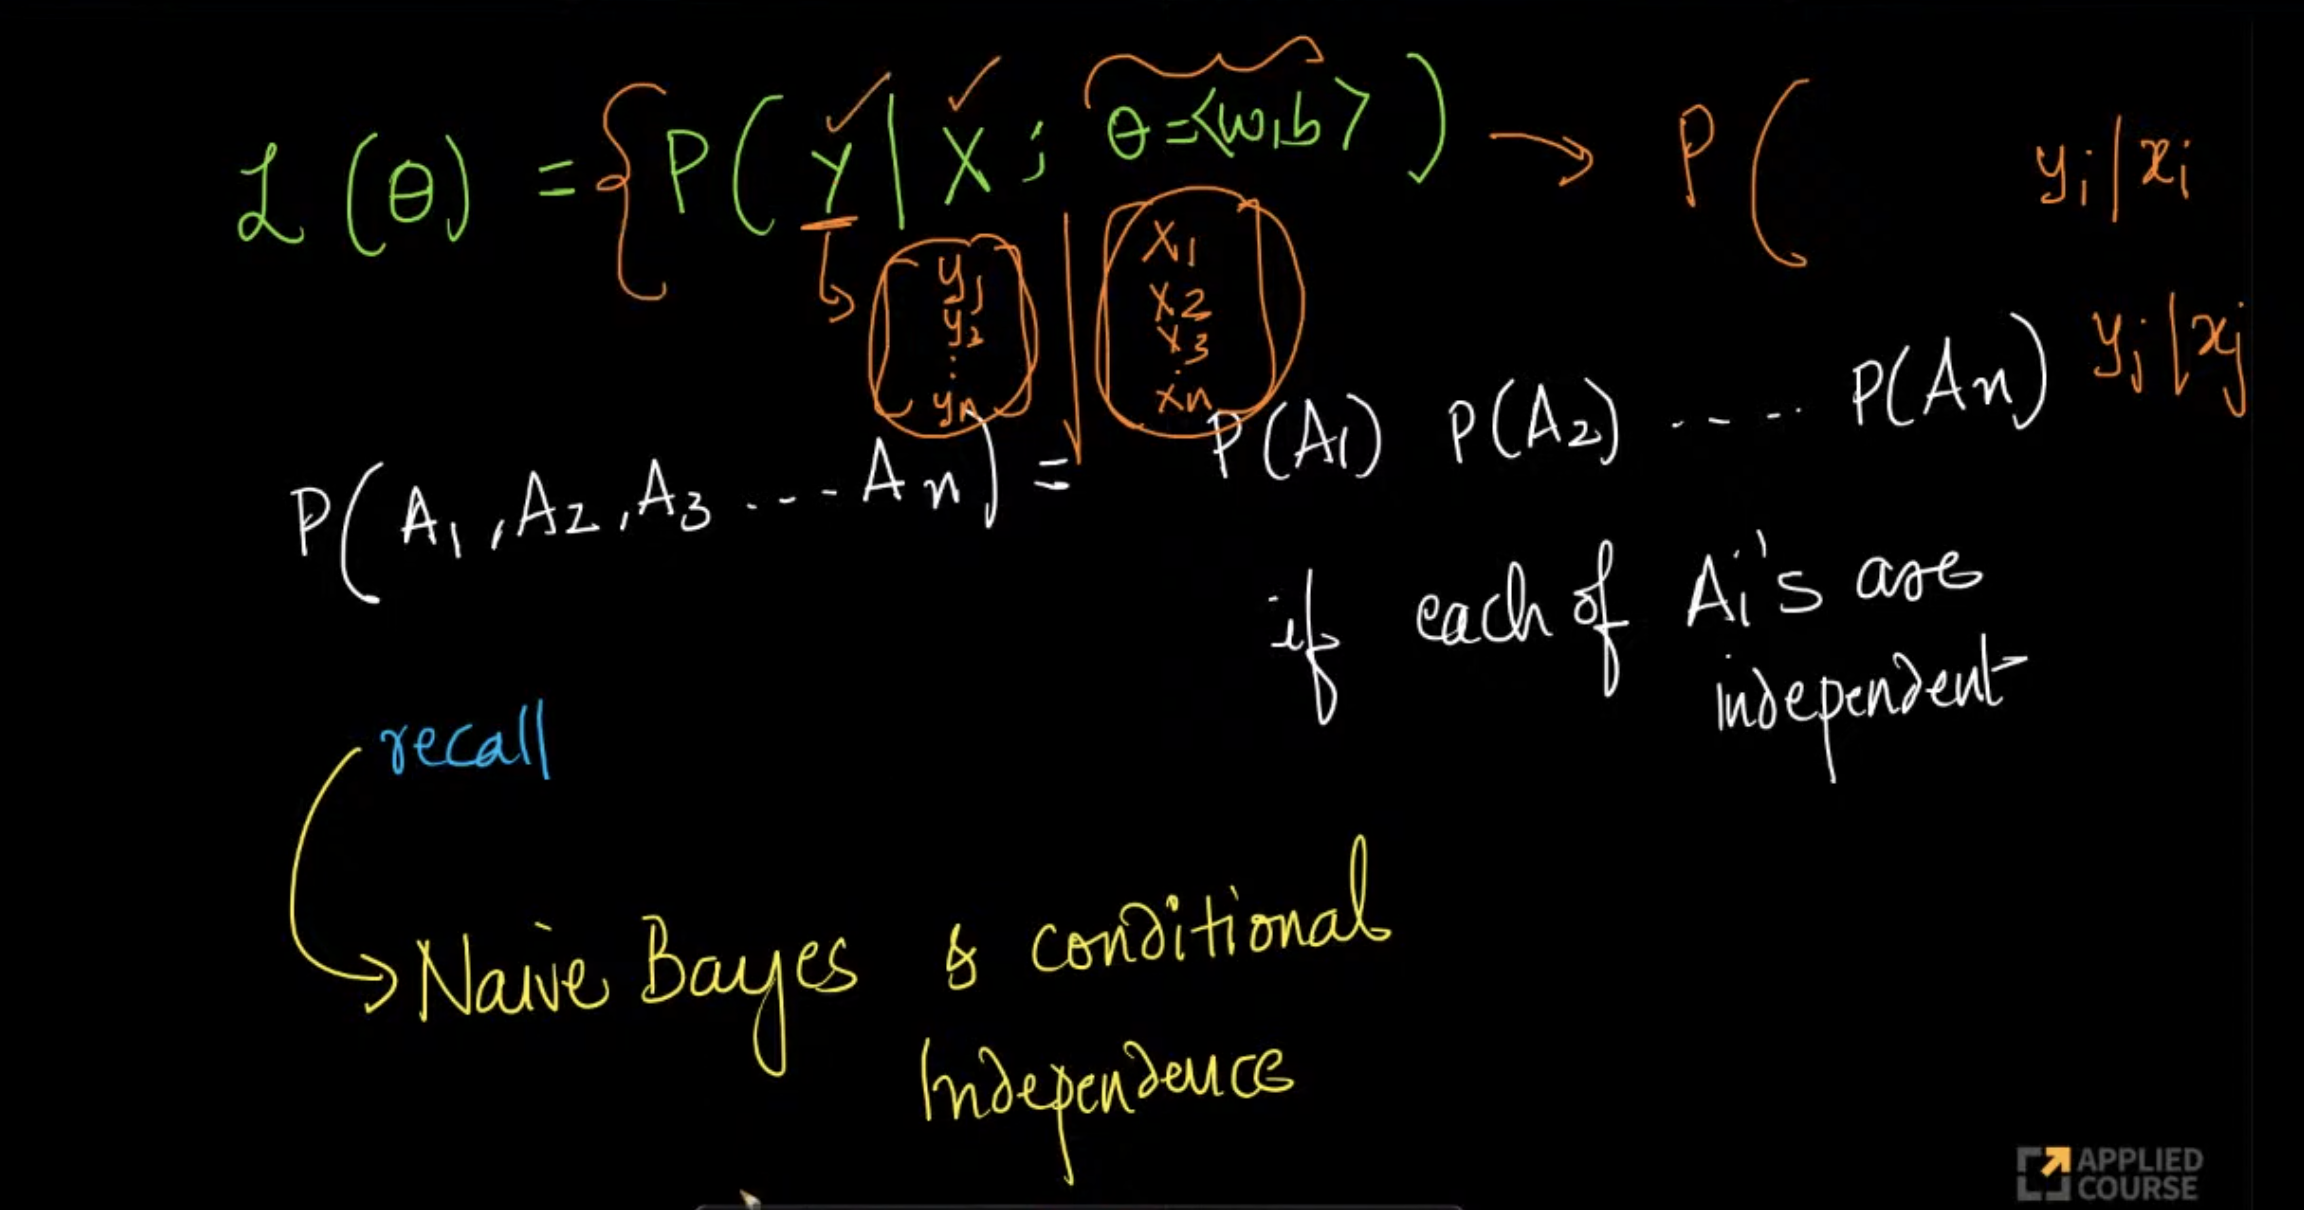 L(θ) = { P(Y | X ; θ = <w,b>) → P( yi | xi
y1 x1
y2 x2
⋮ x3
yn ⋮ xn
yj | xj
P(A1, A2, A3 ... An) = P(A1) P(A2) ..... P(An)
if each of Ai's are
independent
recall
→ Naive Bayes & conditional
Independence
APPLIED
COURSE